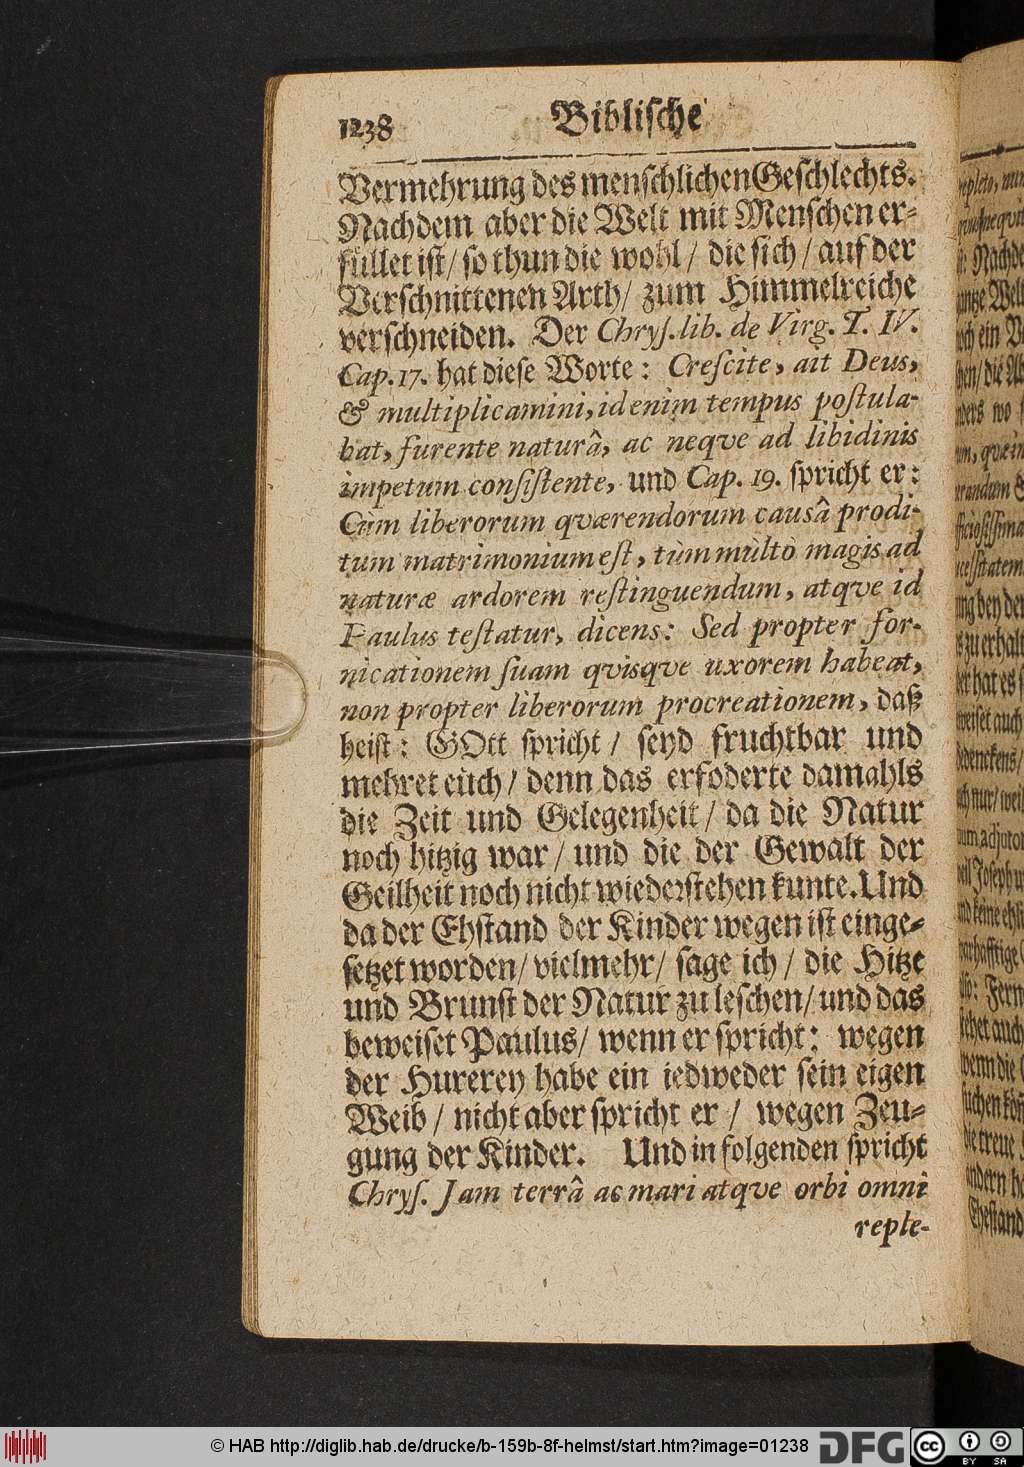 1238 Biblische
Vermehrung des menschlichen Geschlechts.
Nachdem aber die Welt mit Menschen er-
füllet ist/ so thun die wohl/ die sich/ auf der
Verschnittenen Arth/ zum Himmelreiche
verschneiden. Der Chrys. lib. de Virg. T. IV.
Cap. 17. hat diese Worte: Crescite, ait Deus,
& multiplicamini, id enim tempus postula-
bat, furente naturâ, ac neqve ad libidinis
impetum consistente, und Cap. 19. spricht er:
Cùm liberorum qværendorum causâ prodi-
tum matrimonium est, tùm multò magis ad
naturæ ardorem restinguendum, atqve id
Paulus testatur, dicens: Sed propter for-
nicationem suam qvisqve uxorem habeat,
non propter liberorum procreationem, daß
heist: GOtt spricht/ seyd fruchtbar und
mehret euch/ denn das erfoderte damahls
die Zeit und Gelegenheit/ da die Natur
noch hitzig war/ und die der Gewalt der
Geilheit noch nicht wiederstehen kunte. Und
da der Ehstand der Kinder wegen ist einge-
setzet worden/ vielmehr/ sage ich/ die Hitze
und Brunst der Natur zu leschen/ und das
beweiset Paulus/ wenn er spricht: wegen
der Hurerey habe ein iedweder sein eigen
Weib/ nicht aber spricht er/ wegen Zeu-
gung der Kinder. Und in folgenden spricht
Chrys. Jam terrâ ac mari atqve orbi omni
reple-
© HAB http://diglib.hab.de/drucke/b-159b-8f-helmst/start.htm?image=01238 DFG cc BY SA